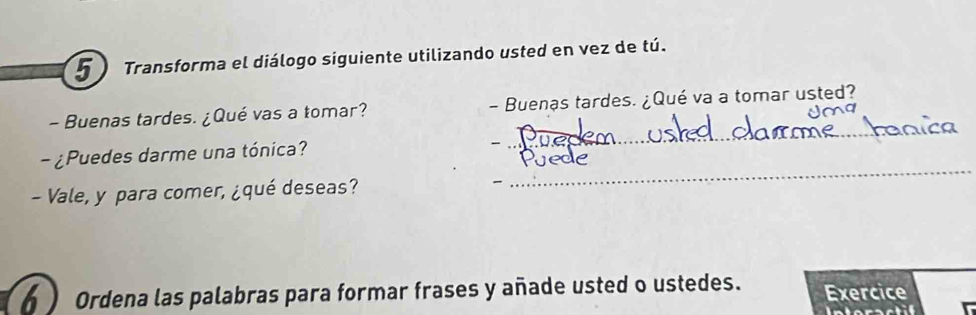 5 Transforma el diálogo siguiente utilizando usted en vez de tú.
- Buenas tardes. ¿Qué vas a tomar?
- ¿Puedes darme una tónica?
- Vale, y para comer, ¿qué deseas?
- Buenas tardes. ¿Qué va a tomar usted?
uma
- Puedem usted darme tonica
Puede
-
6 Ordena las palabras para formar frases y añade usted o ustedes.
Exercice